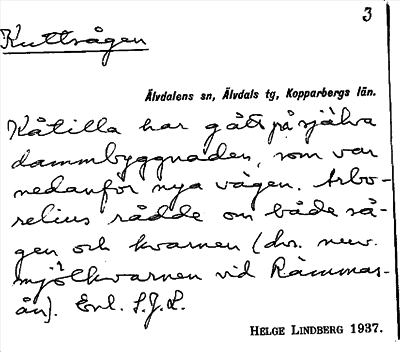 3
Kuttsågen
Älvdalens sn, Älvdals tg, Kopparbergs län.
Kåtilla har gått på själva
dammbyggnaden, som var
nedanför nya vägen. Arbo-
relius rådde om både så-
gen och kvarnen (dvs. nuv.
mjölkvarnen vid Rämmas-
ån). Enl. S.J.L.
HELGE LINDBERG 1937.